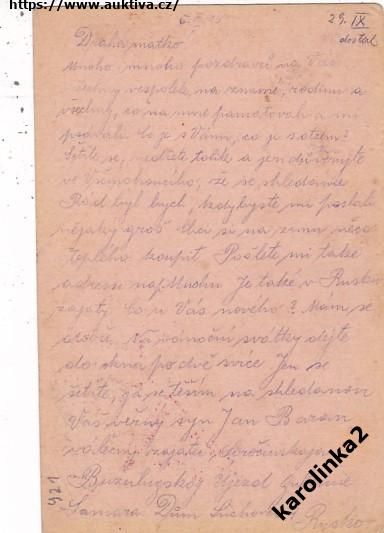 https://www.auktiva.cz/
29. IX
dostal
Drahá matko!
Mnoho mnoho pozdravů na Vás
všechny vespolek, na známé, rodinu a
všechny, co na mne pamatovali a mi
psavali. Co je s Vámi, co je s otcem?
Těšte se, a jen důvěřujte
ve Všemohoucího, že se shledáme
Rád byl bych, kdybyste mi poslali
nějaký groš Chci si na zimu něco
teplého koupit Pošlete mi také
adresu Je také v Rusku
zajatý Co u Vás nového? Mám se
dobře. Na vánoční svátky dejte
do okna po dvě svíce Jen se
těšte, já se těším na shledanou
Váš věrný syn Jan Baran
válečný zajatec
Buzulupskoj Ujezd
Samara Dům
Rusko
921
karolinka2